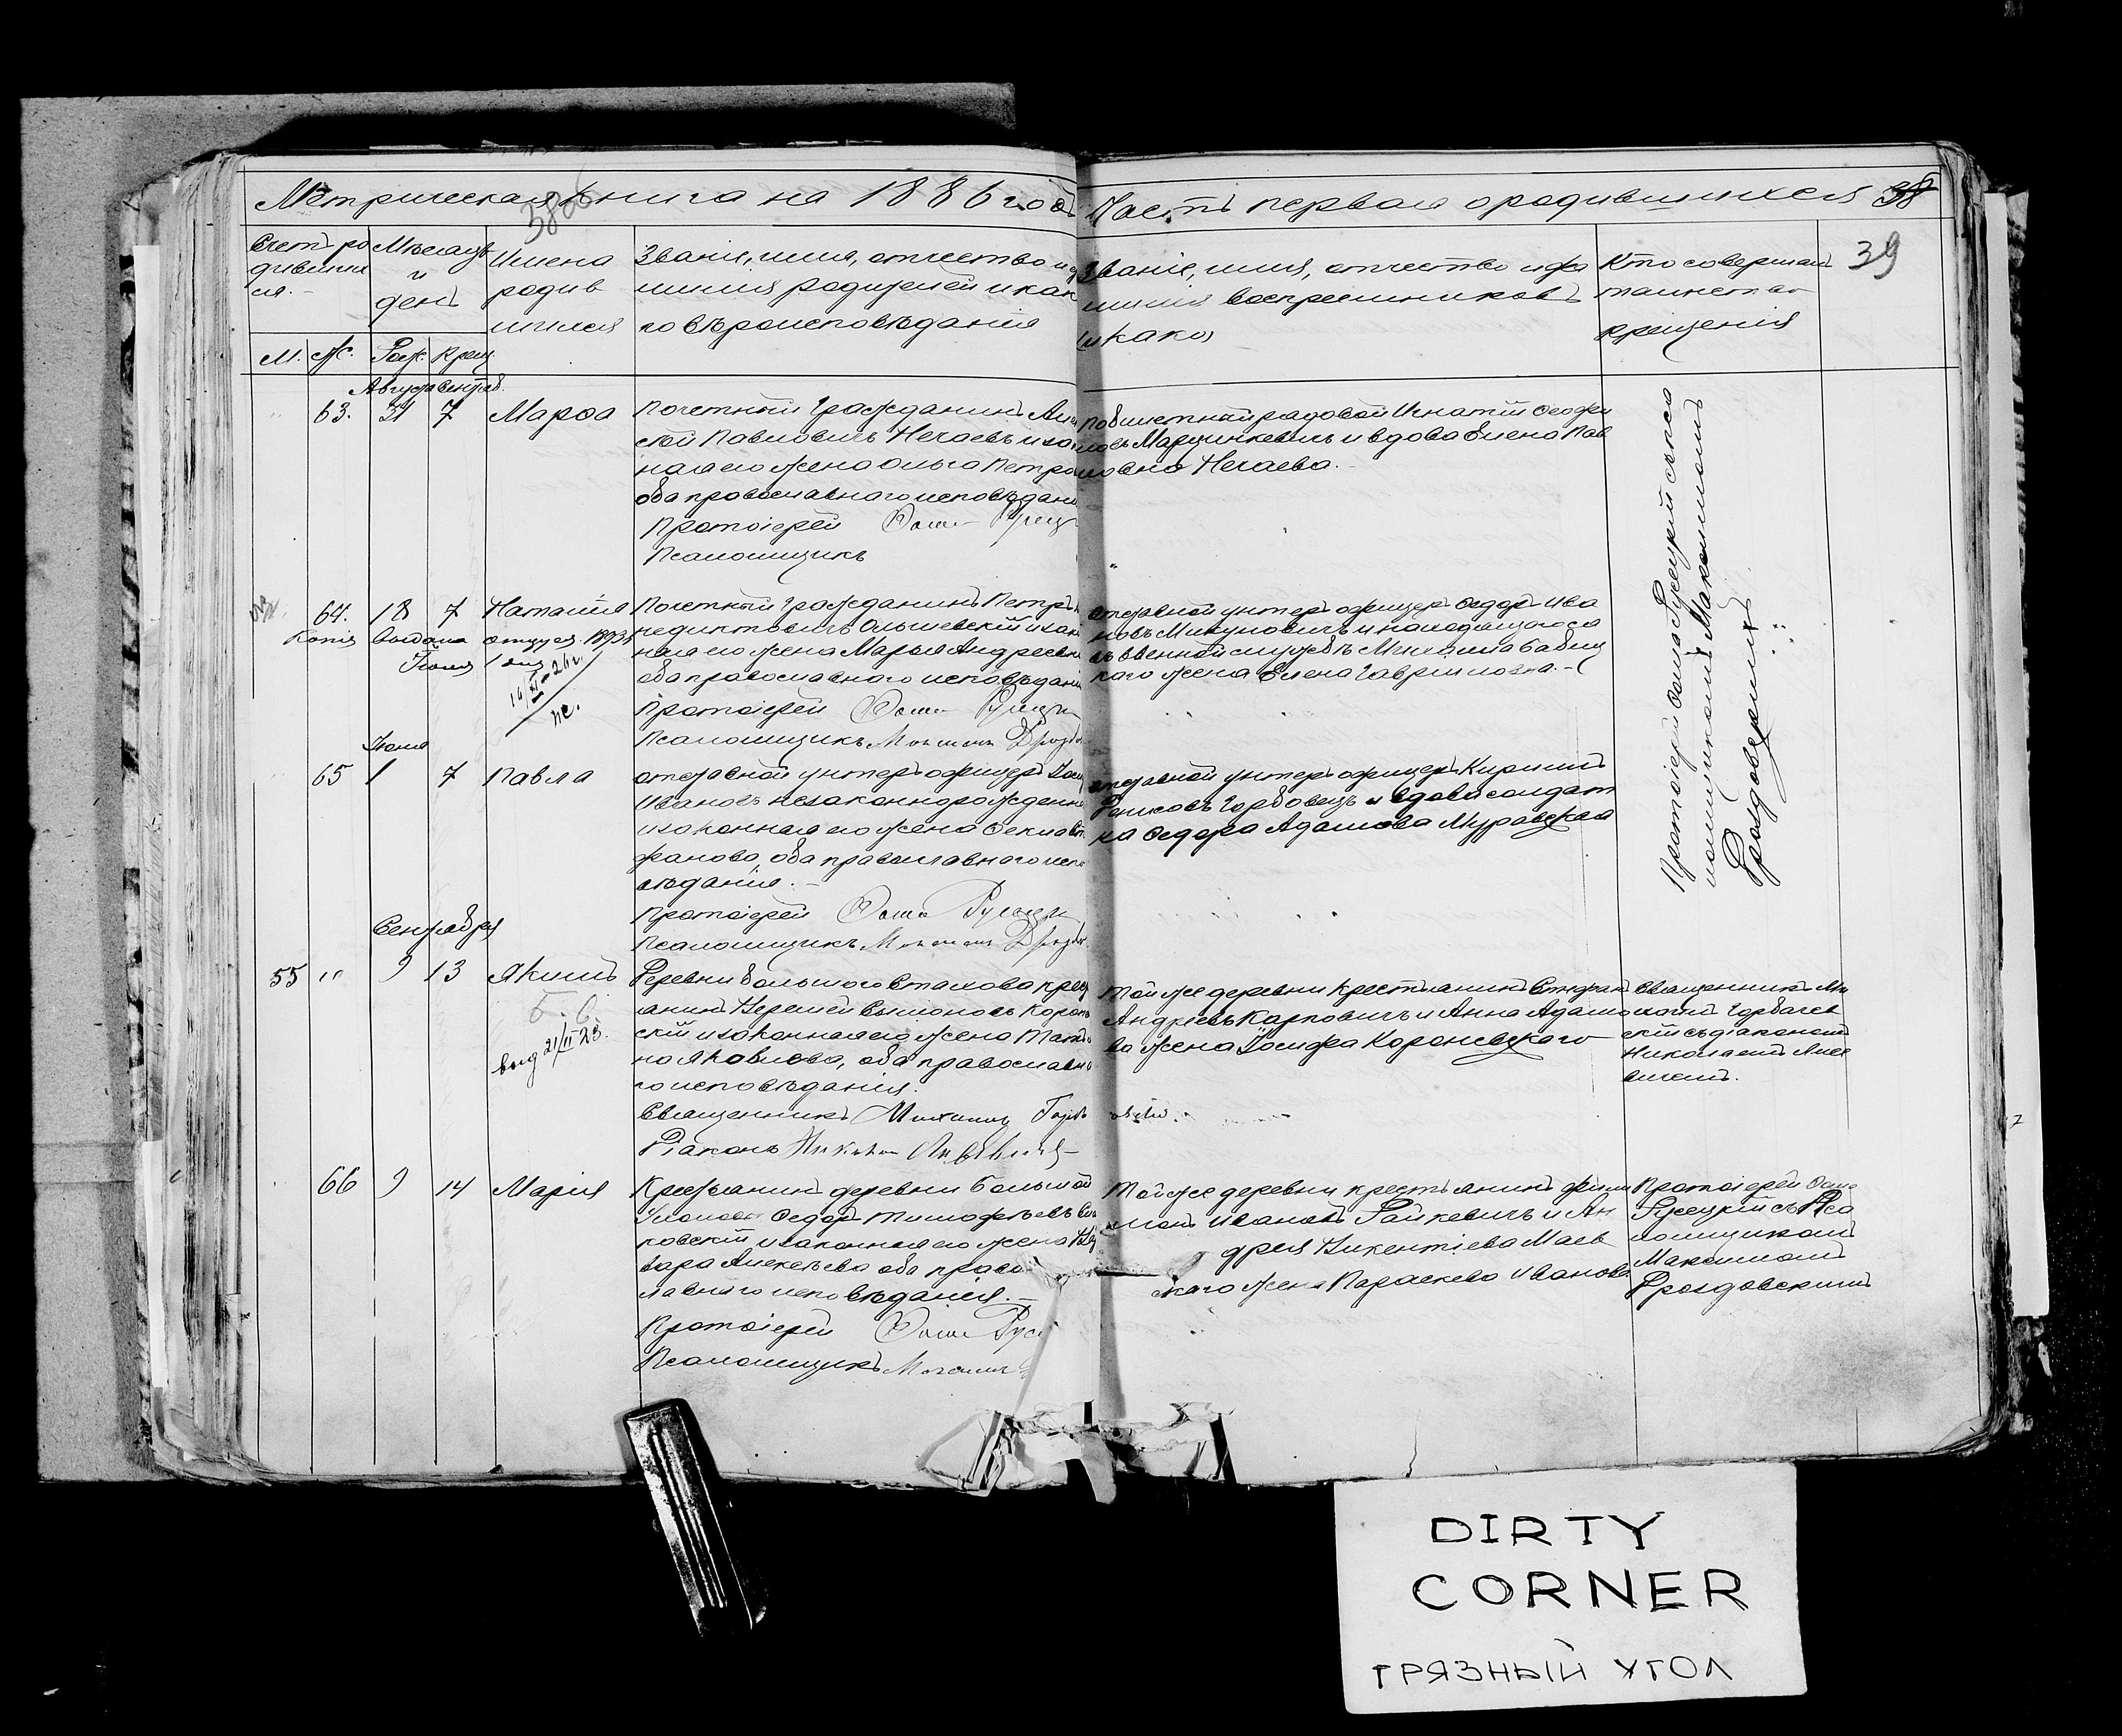 Метрическая книга на 1886 годъ
Часть первая о родившихся 38
39
Счетъ ро
дивших
ся.
Мѣсяцъ
и
день
Имена
родив
шихся
Званіе, имя, отчество и ф
милія родителей и как
го вѣроисповѣданія
Званіе, имя, отчество и фа
милія воспріемниковъ
Кто совершал
таинство
крещенія
М. Ж. Рож. Крещ.
Августа Сентяб.
63. 31 7 Марѳа
Почетный Гражданинъ Але
сѣй Павловичъ Нечаевъ и зако
ная его жена Ольга Петро
оба православнаго исповѣдан
Протоіерей
Псаломщикъ
рядовой Игнатій Ѳеофи
ловъ Марцинкевичъ и вдова Елена Пав
ловна Нечаева.
Протоіерей Ѳома Русецкій съ пса
ломщикомъ Максимомъ
Дроздовскимъ
64. 18 7 Наталія
Копія выдана
Почетный Гражданинъ Петръ
недиктовичъ Ольшевскій и зако
ная его жена Марья Андреевн
оба православнаго исповѣдан
Протоіерей Ѳома Русецк
Псаломщикъ Максимъ Дрозд
отставной унтеръ офицеръ Ѳедоръ Ива
новъ Микуловичъ и находящагося
въ военной службѣ Михаила Бабиц
каго жена Елена Гавріиловна.
Іюня
65 1 7 Павла
отставной унтеръ офицеръ
Ивановъ незаконнорожденн
и законная его жена Ѳекла Сте
фанова, оба православнаго испо
вѣданія.
Протоіерей Ѳома Русецк
Псаломщикъ Максимъ Дрозд
отставной унтеръ офицеръ Кириллъ
Денисовъ Горбовецъ и вдова солдат
ка Ѳедора Адамова Муравская
Сентября
55 " 9 13 Якимъ
выд 21/II 23.
Деревни Большого Стахова крест
анинъ Іеремей Сымоновъ Корон
скій и законная его жена Татья
на Яковлева, оба православна
го исповѣданія.
Священникъ Михаилъ Горб
Діаконъ Николай
Той же деревни крестьянинъ Стефанъ
Андреевъ Карповичъ и Анна Адамо
ва жена Іосифа Короневскаго
Священникъ Ми
хаилъ Горбачев
скій съ діакономъ
Николаемъ
66 9 14 Марія
Крестьянинъ деревни Большой
Ѳедоръ Тимофѣевъ
ковскій и законная его жена
вара Алексѣева оба право
лавнаго исповѣданія.
Протоіерей Ѳома Рус
Псаломщикъ Максимъ
Той же деревни крестьянинъ Фили
монъ Ивановъ Райкевичъ и Ан
дрея Викентіева Маев
скаго жена Параскева Иванова
Протоіерей Ѳома
Русецкій съ Пса
ломщикомъ
Максимомъ
Дроздовскимъ
DIRTY
CORNER
ГРЯЗНЫЙ УГОЛ